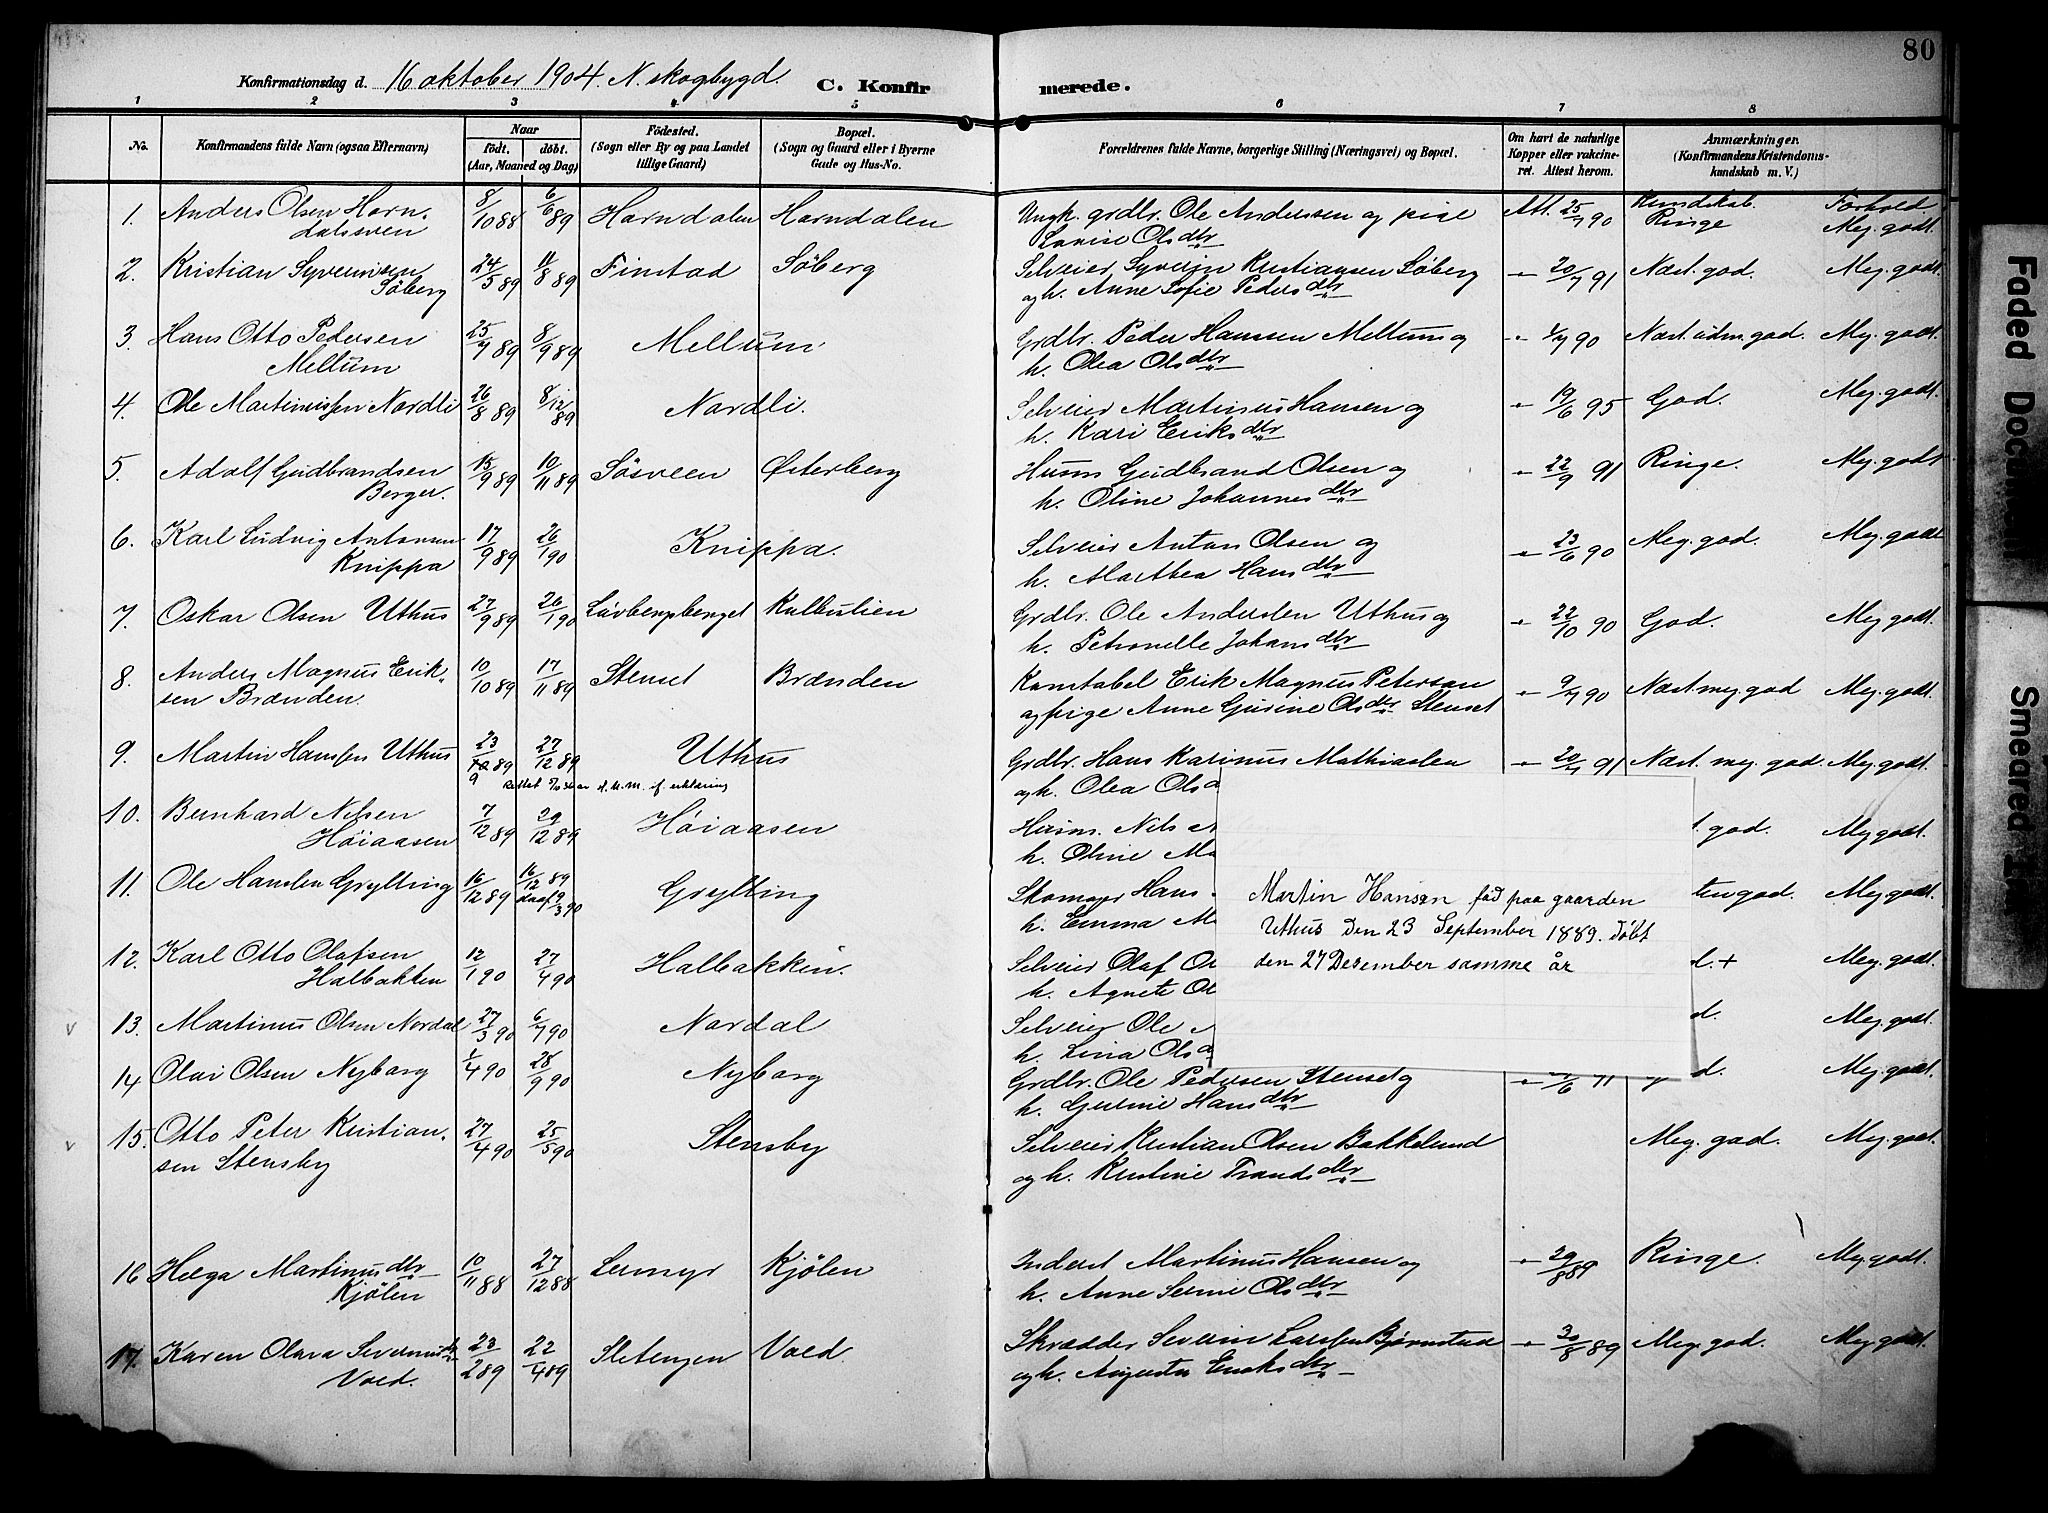 80
Konfirmationsdag d. 16 oktober 1904. N. skogbygd. C. Konfirmerede.
1 2 3 4 5 6 7 8
No. Konfirmandens fulde Navn (ogsaa Efternavn) Naar født. døbt. (Aar, Maaned og Dag) Fødested. (Sogn eller By og paa Landet tillige Gaard) Bopæl. (Sogn og Gaard eller i Byerne Gade og Hus-No. Forældrenes fulde Navne, borgerlige Stilling (Næringsvei) og Bopæl. Om havt de naturlige Kopper eller vakcineret. Attest herom. Anmærkninger. (Konfirmandens Kristendomskundskab m. V.)
Kundskab. Forhold
1. Anders Olsen Horndalsveen 8/10 88 6/6 89 Horndalen Horndalen Ungk. grdbr. Ole Andersen og pige Att. 25/7 90 Ringe Meg. godt.
Lovise Olsdtr
2. Kristian Syverinsen Søberg 24/5 89 11/8 89 Finstad Søberg Selveier Syverin Kristiansen Søberg " 20/7 91 Næst. god. Meg. godt.
og h. Anne Sofie Pedersdtr
3. Hans Otto Pedersen Mellum 25/7 89 8/9 89 Mellum Grdbr. Peder Hanssen Mellum og " 1/7 90 Næst. udm. god. Meg. godt.
h. Olea Olsdtr
4. Ole Martinussen Nordli 26/8 89 8/12 89 Nordli. Selveier Martinus Hansen og " 19/6 95 God. Meg. godt.
h. Kari Eriksdtr
5. Adolf Gudbrandsen Berger. 15/9 89 10/11 89 Søsveen Østerberg Husm. Gudbrand Olsen og " 22/9 91 Ringe. Meg. godt
h. Oline Johannesdtr
6. Karl Ludvig Antonsen Knippa 17/9 89 26/1 90 Knippa. Selveier Anton Olsen og " 23/6 90 Meg. god. Meg. godt
h. Marthea Hansdtr
7. Oskar Olsen Uthus 27/9 89 26/1 90 Kulbulien Grdbr. Ole Andersen Uthus og " 22/10 90 God. Meg. godt.
h. Petronelle Johansdtr
8. Anders Magnus Eriksen Brænden. 10/10 89 17/11 89 Stenset Brænden Konstabel Erik Magnus Petersen " 9/7 90 Næst. meg. god Meg. godt.
og pige Anne Gurine Olsdtr Stenset
9. Martin Hanssen Uthus 23/10 89 9 27/12 89 Uthus Grdbr. Hans Karinus Mathiassen " 20/7 91 Næst. meg. god. Meg. godt.
Rettet av erklæring og h. Olea Ols
10. Bernhard Nilsen Høiaasen 7/12 89 29/12 89 Høiaasen Husm. Nils t. god. Meg. godt.
h. Oline Ma
11. Ole Hansen Grylting 16/12 89 16/12 89 9/3 90 Grylting Skomager Hans ten god. Meg. godt.
h. Emma M
Martin Hansen fød paa gaarden
Uthus den 23 September 1889. døbt
den 27 Desember samme år
12. Karl Otto Olafsen Halbakken 12/1 90 27/4 90 Halbakken. Selveier Olaf d. + Meg. godt.
h. Agnete
13. Martinus Olsen Nordal 27/3 90 6/7 90 Nordal Selveier Ole d. Meg. godt.
h. Lina Ols
14 Olai Olsen Nyborg 1/4 90 28/9 90 Nyborg Grdbr. Ole Pedersen Stenset og d. Meg. godt.
h. Gurine Hansdtr
15. Otto Peter Kristiansen Stensby 27/4 90 25/5 90 Stensby Selveier Kristian Olsen Bakkelund Meg. god. Meg. godt.
og h. Kristine Trondsdtr
16 Helga Martinusdtr Kjølen 10/11 88 27/12 88 Lermyr Kjølen Inderst Martinus Hansen og " 29/8 89 Ringe. Meg. godt.
h. Anne Serine Olsdtr
17. Karen Olava Severinsdtr Vold. 23/2 89 22/4 89 Vold. Skrædder Severin Larssen Bjørnstad " 30/8 89 Meg. god. Meg. godt
og h. Augusta Eriksdtr
Faded Document
Smeared